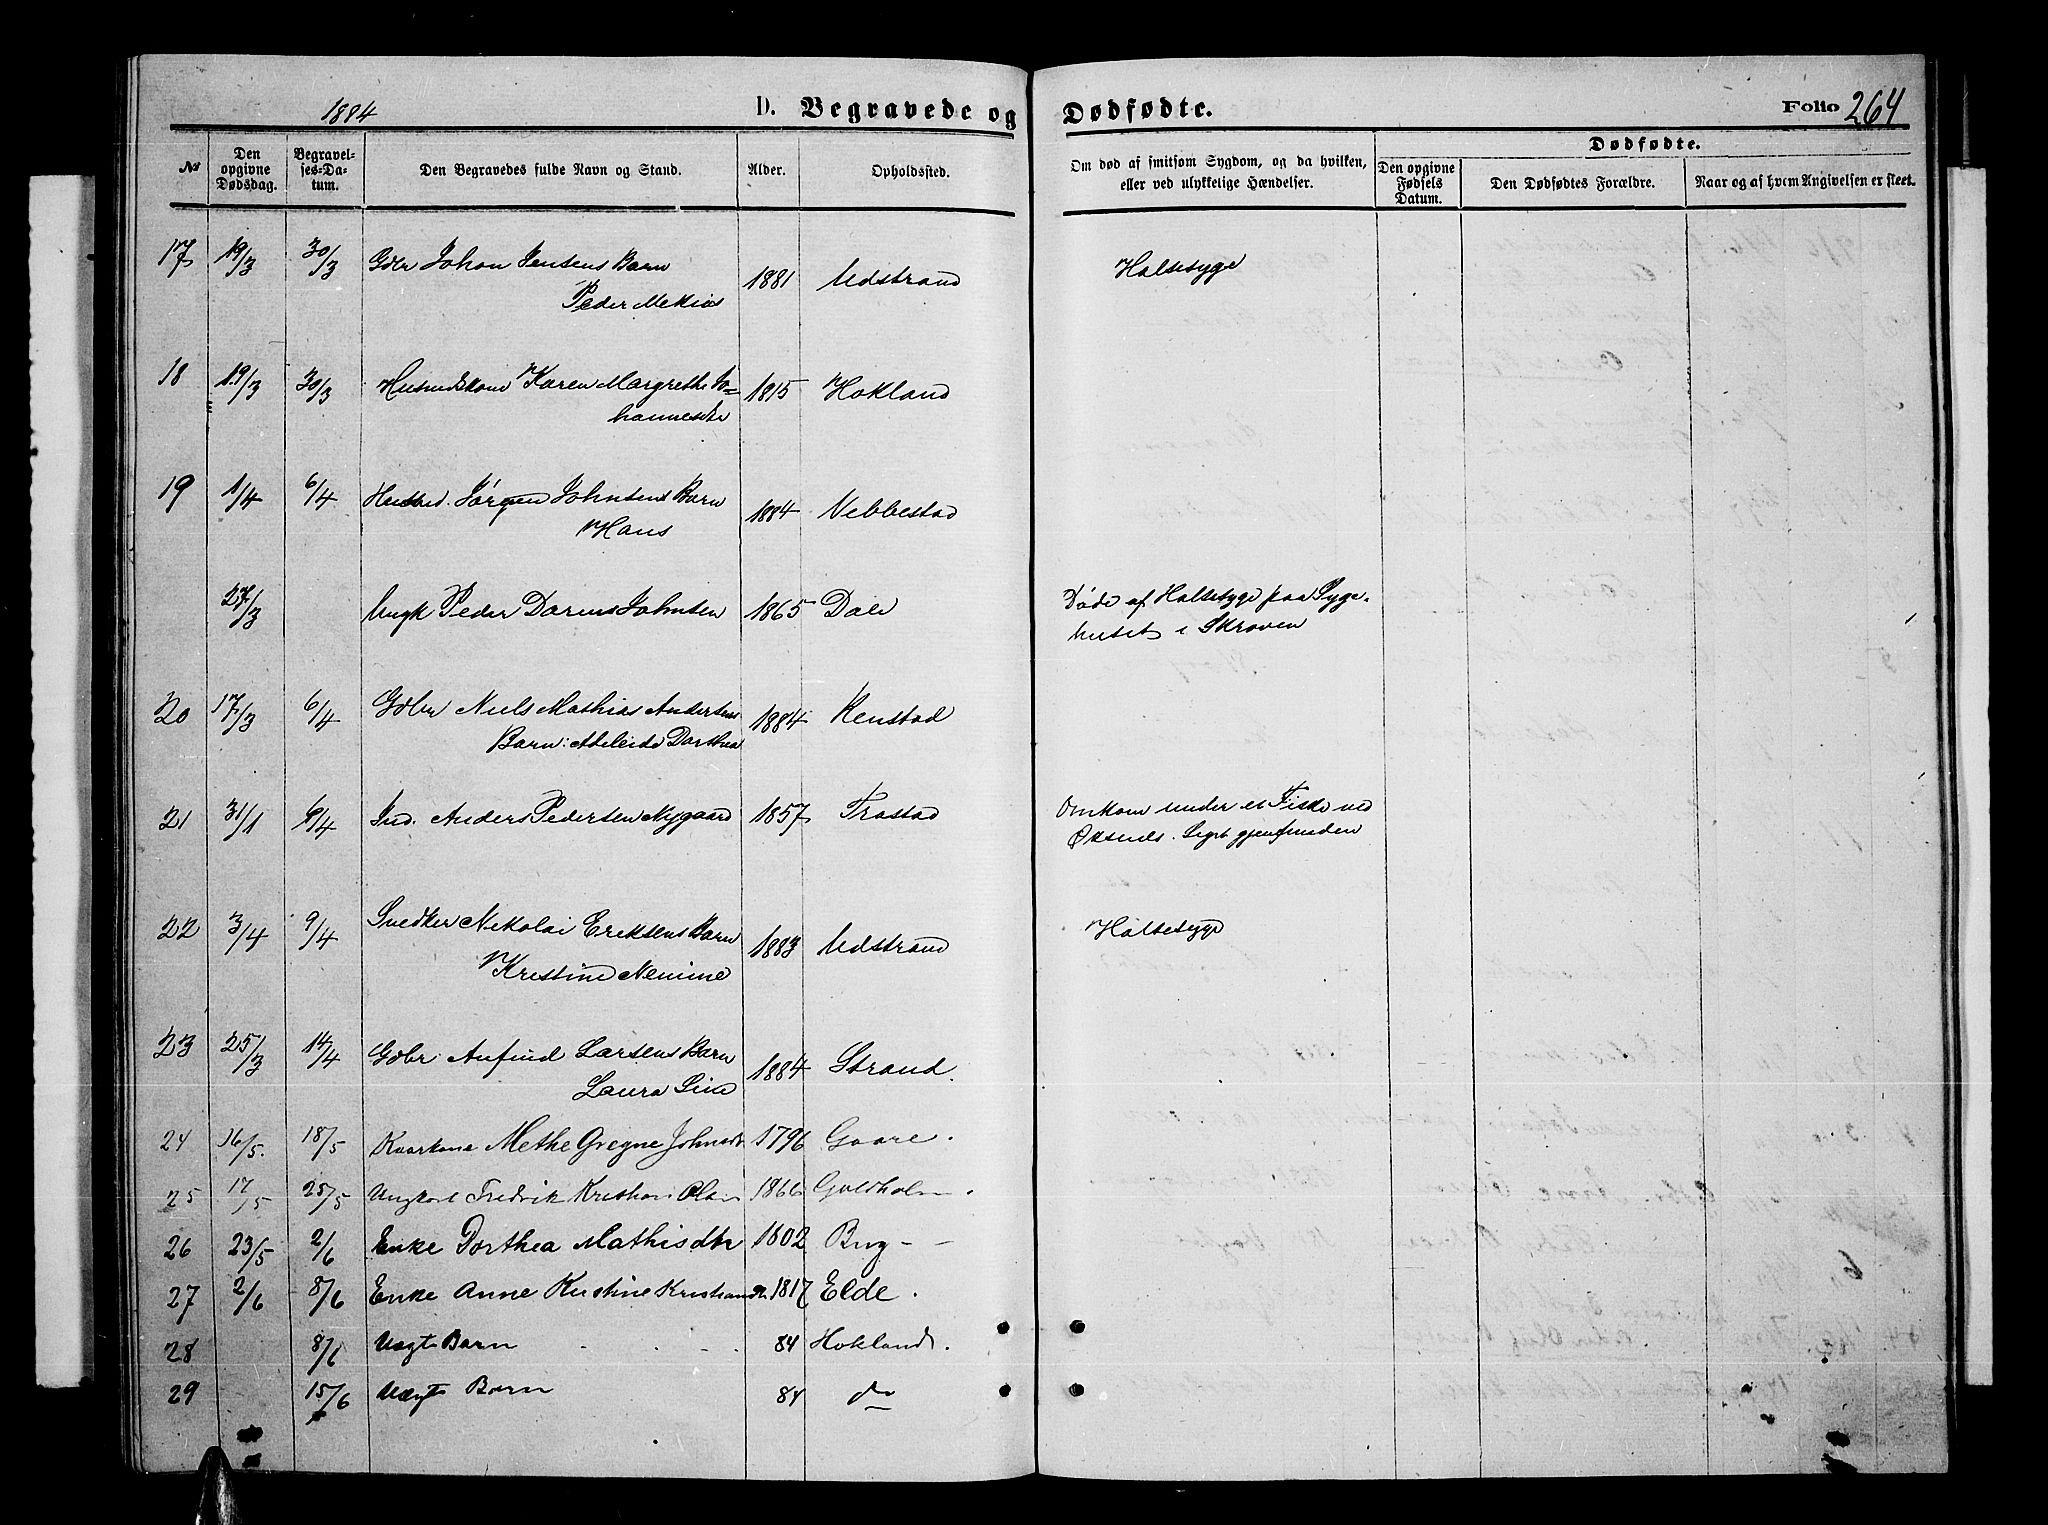 1884
D. Begravede og Dødfødte.
Folio 264
No
Den opgivne Dødsdag.
Begravelses-Datum.
Den Begravedes fulde Navn og Stand.
Alder.
Opholdssted.
Om død af smitsom Sygdom, og da hvilken, eller ved ulykkelige Hændelser.
Dødfødte.
Den opgivne Fødsels Datum.
Den Dødfødtes Forældre.
Naar og af hvem Angivelsen er skeet.
17 19/3 30/3 Gdbr Johan Jensens Barn 1881 Udstrand Halssyge
Peder Mekias
18 19/3 30/3 Husmdskone Karen Margrethe Jo= 1815 Hokland
hannesdr
19 1/4 6/4 Husmd. Jørgen Johnsens Barn 1884 Vebbestad
Hans
27/3 Ungk Peder Dorius Johnsen 1865 Dale Døde af Halssyge paa Syge-
huset i Skroven
20 17/3 6/4 Gdbr Niels Mathias Andersens 1884 Renstad
Barn: Adeleide Dorthea
21 31/1 6/4 Ind. Anders Pedersen Nygaard 1857 Trastad Omkom under et Fiske ved
Øksnes. Liget gjenfunden
22 3/4 9/4 Snedker Nikolai Eriksens Barn 1883 Udstrand Halssyge
Kristine Nemine
23 25/3 14/4 Gdbr Anfind Larsens Barn 1884 Strand.
Laura Sine
24 16/5. 18/5 Kaarkone Methe Gregne Johnsdr 1796 Gaare.
25 17/5 25/5 Ungkarl Fredrik Kristian Olsen 1866 Guldholm.
26 23/5 2/6 Enke Dorthea Mathisdtr 1802 Byg - -
27 2/6 8/6 Enke Anne Kirstine Kristiansdr. 1817 Elde.
28 8/6 Uægte Barn 84 Hokland.
29 15/6 Uægte Barn 84 do